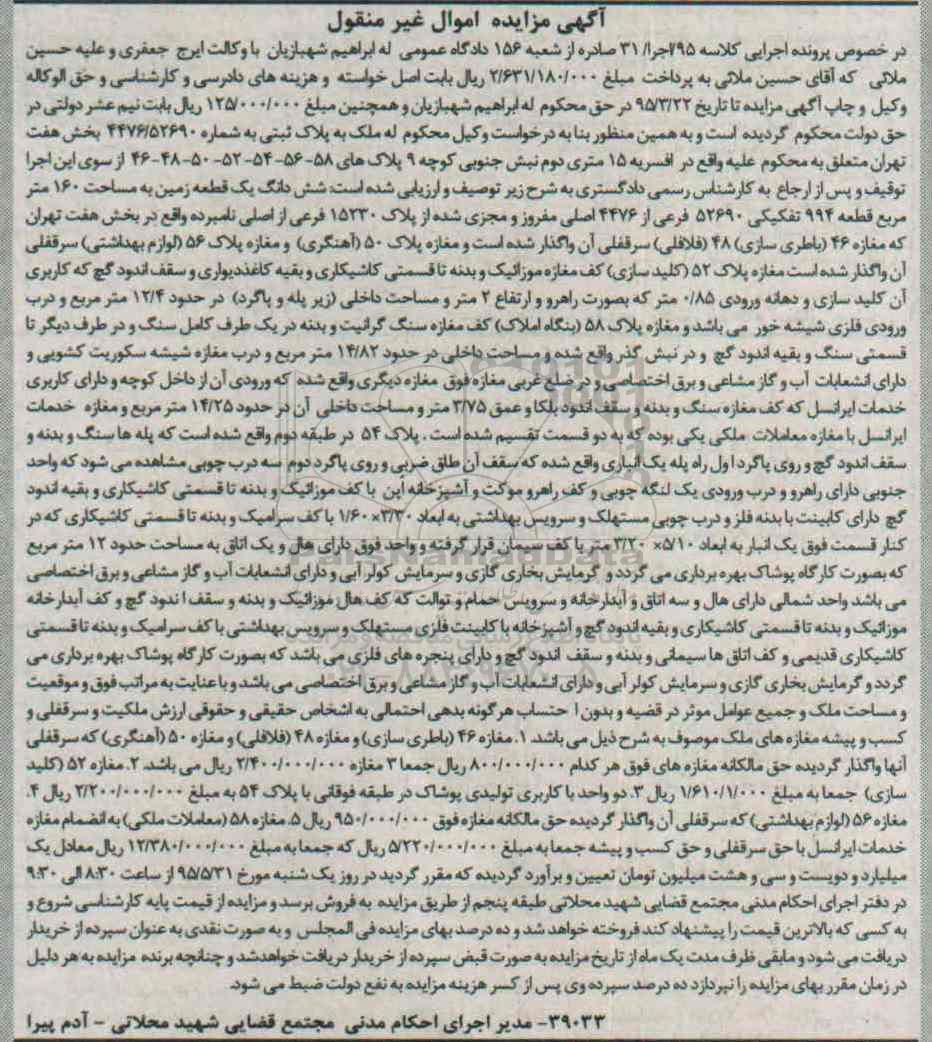 آگهی مزایده اموال غیر منقول
در خصوص پرونده اجرایی کلاسه ۹۵/اجرا/ ۳۱ صادره از شعبه ۱۵۶ دادگاه عمومی له ابراهیم شهبازیان با وکالت ایرج جعفری و علیه حسین
ملائی که آقای حسین ملائی به پرداخت مبلغ ۲/۶۳۱/۱۸۰/۰۰۰ ریال بابت اصل خواسته و هزینه های دادرسی و کارشناسی و حق الوکاله
وکیل و چاپ آگهی مزایده تا تاریخ ۹۵/۳/۲۲ در حق محکوم له ابراهیم شهبازیان و همچنین مبلغ ۱۲۵/۰۰۰/۰۰۰ ریال بابت نیم عشر دولتی در
حق دولت محکوم گردیده است و به همین منظور بنا به درخواست وکیل محکوم له ملک به پلاک ثبتی به شماره ۴۴۷۶/۵۲۶۹۰ بخش هفت
تهران متعلق به محکوم علیه واقع در افسریه ۱۵ متری دوم نبش جنوبی کوچه ۹ پلاک های ۵۸-۵۶-۵۴-۵۲-۵۰-۴۸-۴۶ از سوی این اجرا
توقیف و پس از ارجاع به کارشناس رسمی دادگستری به شرح زیر توصیف و ارزیابی شده است: شش دانگ یک قطعه زمین به مساحت ۱۶۰ متر
مربع قطعه ۹۹۴ تفکیکی ۵۲۶۹۰ فرعی از ۴۴۷۶ اصلی مفروز و مجزی شده از پلاک ۱۵۲۳۰ فرعی از اصلی نامبرده واقع در بخش هفت تهران
که مغازه ۴۶ (باطری سازی) ۴۸ (فلافلی) سرقفلی آن واگذار شده است و مغازه پلاک ۵۰ (آهنگری) و مغازه پلاک ۵۶ (لوازم بهداشتی) سرقفلی
آن واگذار شده است مغازه پلاک ۵۲ (کلید سازی) کف مغازه موزائیک و بدنه تا قسمتی کاشیکاری و بقیه کاغذدیواری و سقف اندود گچ که کاربری
آن کلید سازی و دهانه ورودی ۰/۸۵ متر که بصورت راهرو و ارتفاع ۲ متر و مساحت داخلی (زیر پله و پاگرد) در حدود ۱۲/۴ متر مربع و درب
ورودی فلزی شیشه خور می باشد و مغازه پلاک ۵۸ (بنگاه املاک) کف مغازه سنگ گرانیت و بدنه در یک طرف کامل سنگ و در طرف دیگر تا
قسمتی سنگ و بقیه اندود گچ و در نبش گذر واقع شده و مساحت داخلی در حدود ۱۴/۸۲ متر مربع و درب مغازه شیشه سکوریت کشویی و
دارای انشعابات آب و گاز مشاعی و برق اختصاصی و در ضلع غربی مغازه فوق مغازه دیگری واقع شده که ورودی آن از داخل کوچه و دارای کاربری
خدمات ایرانسل که کف مغازه سنگ و بدنه و سقف اندود بلکا و عمق ۳/۷۵ متر و مساحت داخلی آن در حدود ۱۴/۲۵ متر مربع و مغازه خدمات
ایرانسل با مغازه معاملات ملکی یکی بوده که به دو قسمت تقسیم شده است. پلاک ۵۴ در طبقه دوم واقع شده است که پله ها سنگ و بدنه و
سقف اندود گچ و روی پاگرد اول راه پله یک انباری واقع شده که سقف آن طاق ضربی و روی پاگرد دوم سه درب چوبی مشاهده می شود که واحد
جنوبی دارای راهرو و درب ورودی یک لنگه چوبی و کف راهرو موکت و آشپزخانه اپن با کف موزائیک و بدنه تا قسمتی کاشیکاری و بقیه اندود
گچ دارای کابینت با بدنه فلز و درب چوبی مستهلک و سرویس بهداشتی به ابعاد ۳/۳۰×۱/۶۰ با کف سرامیک و بدنه تا قسمتی کاشیکاری که در
کنار قسمت فوق یک انبار به ابعاد ۵/۱۰× ۳/۲۰ متر با کف سیمان قرار گرفته و واحد فوق دارای هال و یک اتاق به مساحت حدود ۱۲ متر مربع
که بصورت کارگاه پوشاک بهره برداری می گردد و گرمایش بخاری گازی و سرمایش کولر آبی و دارای انشعابات آب و گاز مشاعی و برق اختصاصی
می باشد واحد شمالی دارای هال و سه اتاق و آبدارخانه و سرویس حمام و توالت که کف هال موزائیک و بدنه و سقف اندود گچ و کف آبدارخانه
موزائیک و بدنه تا قسمتی کاشیکاری و بقیه اندود گچ و آشپزخانه با کابینت فلزی مستهلک و سرویس بهداشتی با کف سرامیک و بدنه تا قسمتی
کاشیکاری قدیمی و کف اتاق ها سیمانی و بدنه و سقف اندود گچ و دارای پنجره های فلزی می باشد که بصورت کارگاه پوشاک بهره برداری می
گردد و گرمایش بخاری گازی و سرمایش کولر آبی و دارای انشعابات آب و گاز مشاعی و برق اختصاصی می باشد و با عنایت به مراتب فوق و موقعیت
و مساحت ملک و جمیع عوامل موثر در قضیه و بدون احتساب هرگونه بدهی احتمالی به اشخاص حقیقی و حقوقی ارزش ملکیت و سرقفلی و
کسب و پیشه مغازه های ملک موصوف به شرح ذیل می باشد. ۱. مغازه ۴۶ (باطری سازی) و مغازه ۴۸ (فلافلی) و مغازه ۵۰ (آهنگری) که سرقفلی
آنها واگذار گردیده حق مالکانه مغازه های فوق هر کدام ۸۰۰/۰۰۰/۰۰۰ ریال جمعا ۳ مغازه ۲/۴۰۰/۰۰۰/۰۰۰ ریال می باشد. ۲. مغازه ۵۲ (کلید
سازی) جمعا به مبلغ ۱/۶۱۰/۱/۰۰۰ ریال ۳. دو واحد با کاربری تولیدی پوشاک در طبقه فوقانی با پلاک ۵۴ به مبلغ ۲/۲۰۰/۰۰۰/۰۰۰ ریال ۴.
مغازه ۵۶ (لوازم بهداشتی) که سرقفلی آن واگذار گردیده حق مالکانه مغازه فوق ۹۵۰/۰۰۰/۰۰۰ ریال ۵. مغازه ۵۸ (معاملات ملکی) به انضمام مغازه
خدمات ایرانسل با حق سرقفلی و حق کسب و پیشه جمعا به مبلغ ۵/۲۲۰/۰۰۰/۰۰۰ ریال که جمعا به مبلغ ۱۲/۳۸۰/۰۰۰/۰۰۰ ریال معادل یک
میلیارد و دویست و سی و هشت میلیون تومان تعیین و برآورد گردیده که مقرر گردید در روز یک شنبه مورخ ۹۵/۵/۳۱ از ساعت ۸:۳۰ الی ۹:۳۰
در دفتر اجرای احکام مدنی مجتمع قضایی شهید محلاتی طبقه پنجم از طریق مزایده به فروش برسد و مزایده از قیمت پایه کارشناسی شروع و
به کسی که بالاترین قیمت را پیشنهاد کند فروخته خواهد شد و ده درصد بهای مزایده فی المجلس و به صورت نقدی به عنوان سپرده از خریدار
دریافت می شود و مابقی ظرف مدت یک ماه از تاریخ مزایده به صورت قبض سپرده از خریدار دریافت خواهدشد و چنانچه برنده مزایده به هر دلیل
در زمان مقرر بهای مزایده را نپردازد ده درصد سپرده وی پس از کسر هزینه مزایده به نفع دولت ضبط می شود.
۳۹۰۳۳- مدیر اجرای احکام مدنی مجتمع قضایی شهید محلاتی - آدم پیرا
ParsNamadData